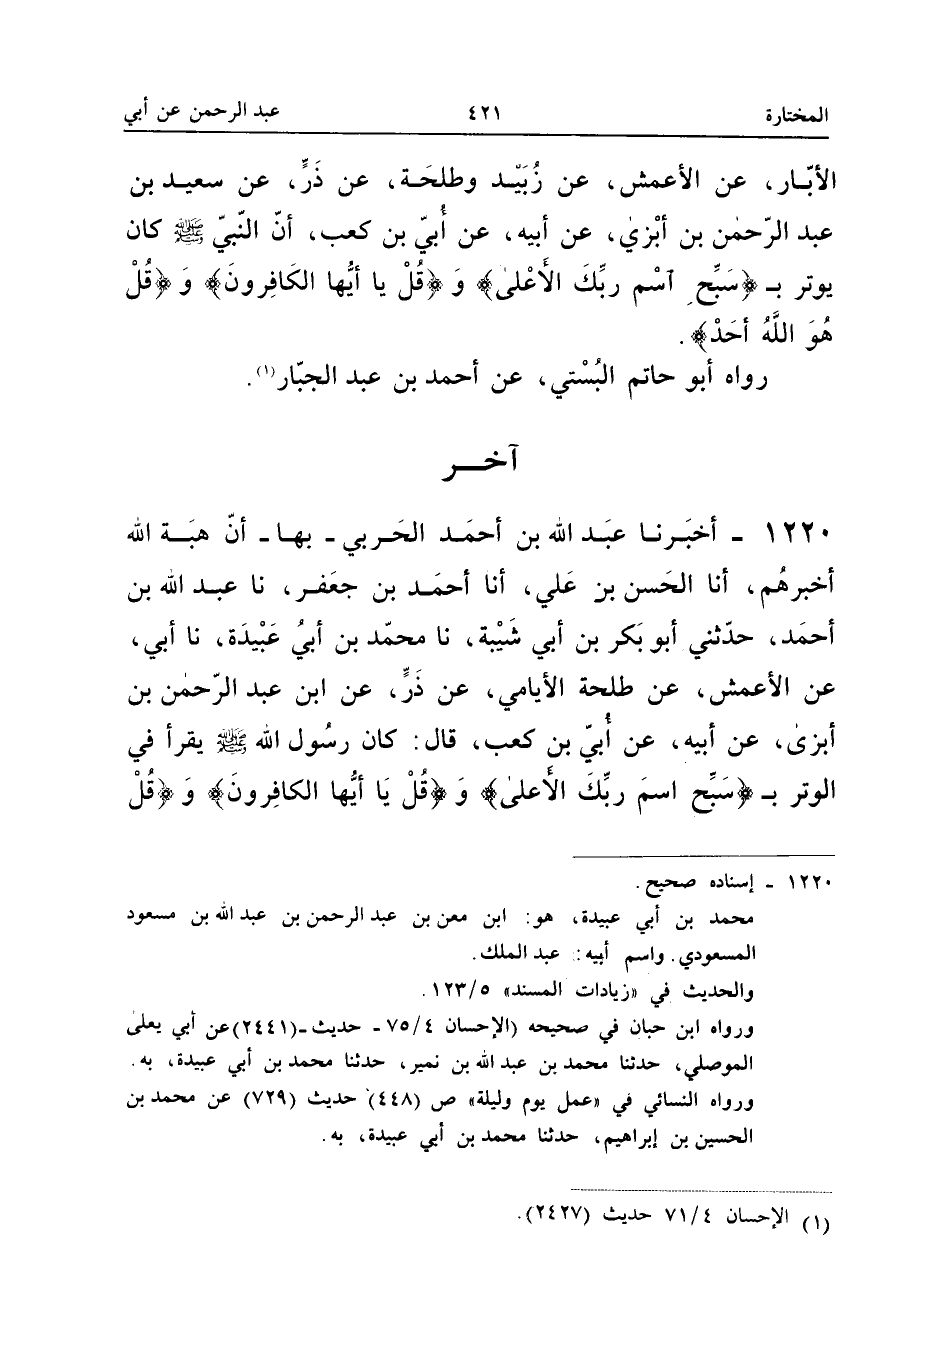 المختارة ٤٢١ عبد الرحمن عن أبي
الأبّـار، عن الأعمش، عن زُبَيْـد وطلحَـة، عن ذَرٍّ، عن سعيـد بن
عبد الرّحمٰن بن أبْزيٰ، عن أبيه، عن أُبيّ بن كعب، أنّ النّبيّ ﷺ كان
يوتر بـ ﴿سَبِّحِ ٱسْم ربِّكَ الأَعْلىٰ﴾ وَ ﴿قُلْ يا أيُّها الكَافِرونَ﴾ وَ ﴿قُلْ
هُوَ اللَّهُ أحَدْ﴾.
رواه أبو حاتم البُسْتي، عن أحمد بن عبد الجبّار(١).
آخـــر
١٢٢٠ - أخبَـرنـا عبَـد الله بن أحمَـد الحَـربي - بهـا - أنّ هبَـة الله
أخبرهُم، أنا الحَسن بن عَلي، أنا أحمَـد بن جعَفـر، نا عبـد الله بن
أحمَد، حدّثني أبو بَكر بن أبي شَيْبة، نا محمّد بن أبيُ عَبْيدَة، نا أبي،
عن الأعمش، عن طلحة الأيامي، عن ذَرٍّ، عن ابن عبد الرّحمٰن بن
أبزىٰ، عن أبيه، عن أُبيّ بن كعب، قال: كان رسُول الله ﷺ يقرأ في
الوتر بـ ﴿سَبِّح اسمَ ربِّكَ الأَعلىٰ﴾ وَ ﴿قُلْ يَا أيُّها الكافِرونَ﴾ وَ ﴿قُلْ
١٢٢٠ - إسناده صحيح.
محمد بن أبي عبيدة، هو: ابن معن بن عبد الرحمن بن عبد الله بن مسعود
المسعودي. واسم أبيه: عبد الملك.
والحديث في «زيادات المسند» ١٢٣/٥.
ورواه ابن حبان في صحيحه (الإحسان ٧٥/٤ - حديث -(٢٤٤١)عن أبي يعلىٰ
الموصلي، حدثنا محمد بن عبد الله بن نمير، حدثنا محمد بن أبي عبيدة، به.
ورواه النسائي في «عمل يوم وليلة» ص (٤٤٨) حديث (٧٢٩) عن محمد بن
الحسين بن إبراهيم، حدثنا محمد بن أبي عبيدة، به.
(١) الإحسان ٧١/٤ حديث (٢٤٢٧).